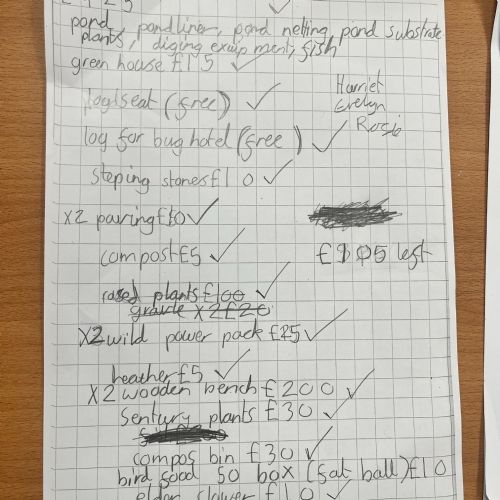 pond, pond liner, pond netting, pond substrate
plants, diging exuip ment, fish
green house £15
log seat (free)
Harriet
Evelyn
Rosie
log for bug hotel (free)
steping stones £10
X2 paving £10
compost £5
left
plants £100
X2 £20
X2 wild power pack £25
heather £5
X2 wooden bench £200
Sentury plants £30
compos bin £30
bird food 50 box (fat ball) £10
£10